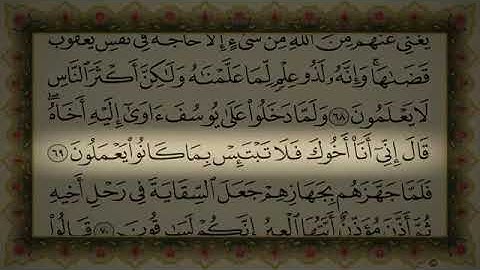 يُغْنِي عَنْهُم مِّنَ اللَّهِ مِن شَيْءٍ إِلَّا حَاجَةً فِي نَفْسِ يَعْقُوبَ
قَضَىٰهَا ۚ وَإِنَّهُۥ لَذُو عِلْمٍ لِّمَا عَلَّمْنَٰهُ وَلَٰكِنَّ أَكْثَرَ النَّاسِ
لَا يَعْلَمُونَ ٦٨ وَلَمَّا دَخَلُوا۟ عَلَىٰ يُوسُفَ ءَاوَىٰٓ إِلَيْهِ أَخَاهُ ۖ
قَالَ إِنِّيٓ أَنَا۠ أَخُوكَ فَلَا تَبْتَئِسْ بِمَا كَانُوا۟ يَعْمَلُونَ ٦٩
فَلَمَّا جَهَّزَهُم بِجَهَازِهِمْ جَعَلَ السِّقَايَةَ فِي رَحْلِ أَخِيهِ
ثُمَّ أَذَّنَ مُؤَذِّنٌ أَيَّتُهَا الْعِيرُ إِنَّكُمْ لَسَٰرِقُونَ ٧٠ قَالُوا۟